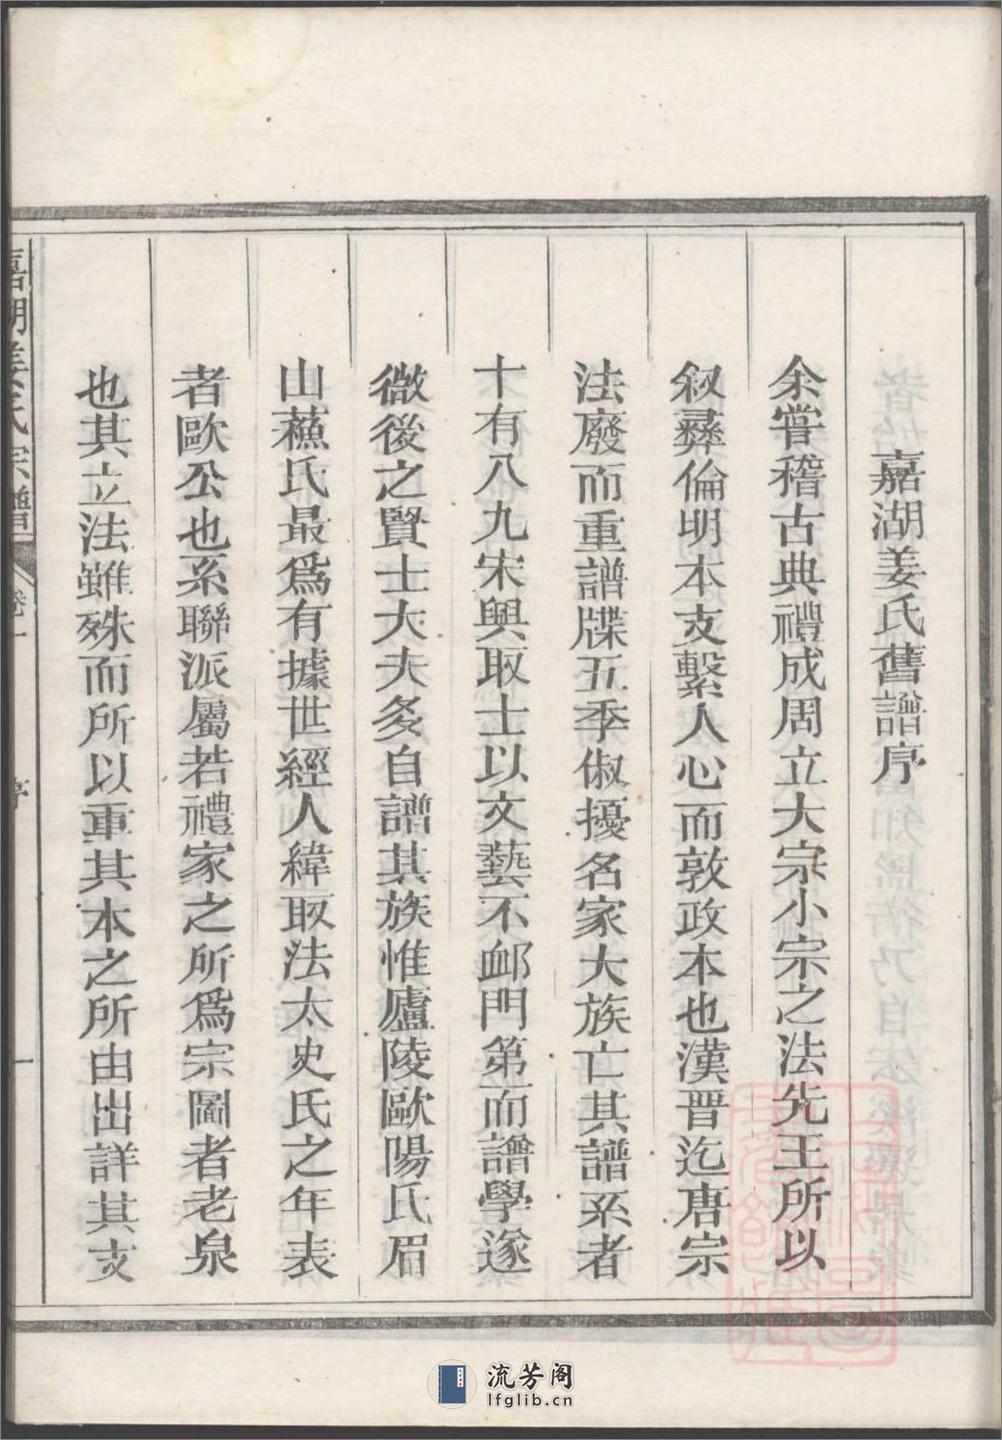 嘉湖姜氏舊譜序
余嘗稽古典禮成周立大宗小宗之法先王所以
叙彞倫明本支繫人心而敦政本也漢晋迄唐宗
法廢而重譜牒五季俶擾名家大族亡其譜系者
十有八九宋興取士以文藝不䘏門第而譜學遂
微後之賢士大夫多自譜其族惟廬陵歐陽氏眉
山蘓氏最爲有據世經人緯取法太史氏之年表
者歐公也系聯派屬若禮家之所爲宗圖者老泉
也其立法雖殊而所以重其本之所由出詳其支
嘉湖姜氏宗譜
卷一
序
一
流芳阁
lfglib.cn